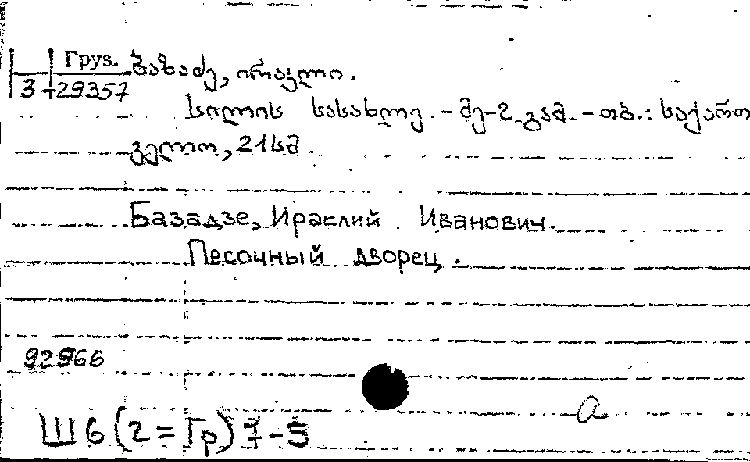 Груз.
3-29357
ბაზაძე, ირაკლი.
სილის სასახლე. - მე-2 გამ. - თბ.: საქართ
ველო, 21სმ.
Базадзе, Ираклий Иванович.
Песочный дворец.
92966
Ш6(2=Гр)7-5
а